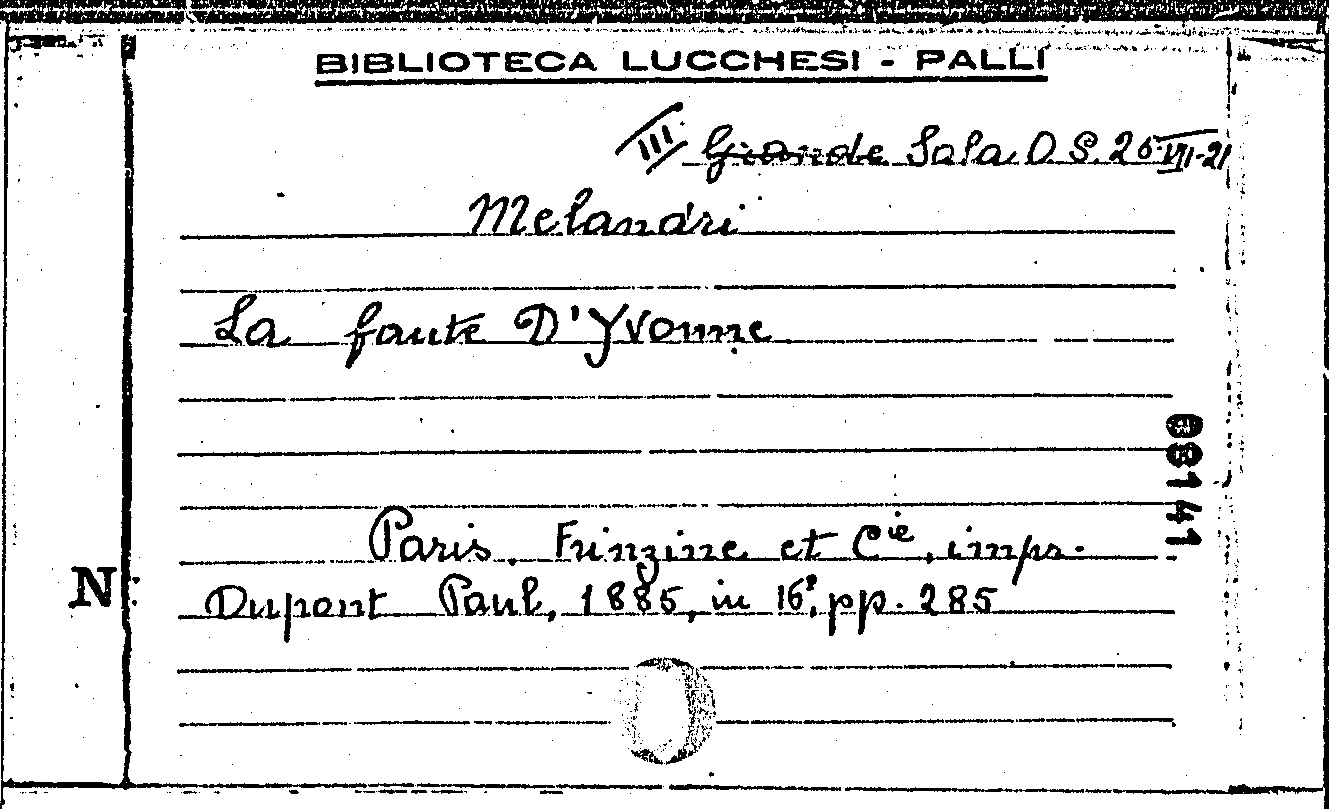 BIBLIOTECA LUCCHESI - PALLI
III Grande Sala O. S. 26 VII-21
Melandri
La faute D'Yvonne
Paris. Frinzine et Cie, imps.
N: Dupont Paul, 1885, in 16°, pp. 285
08141